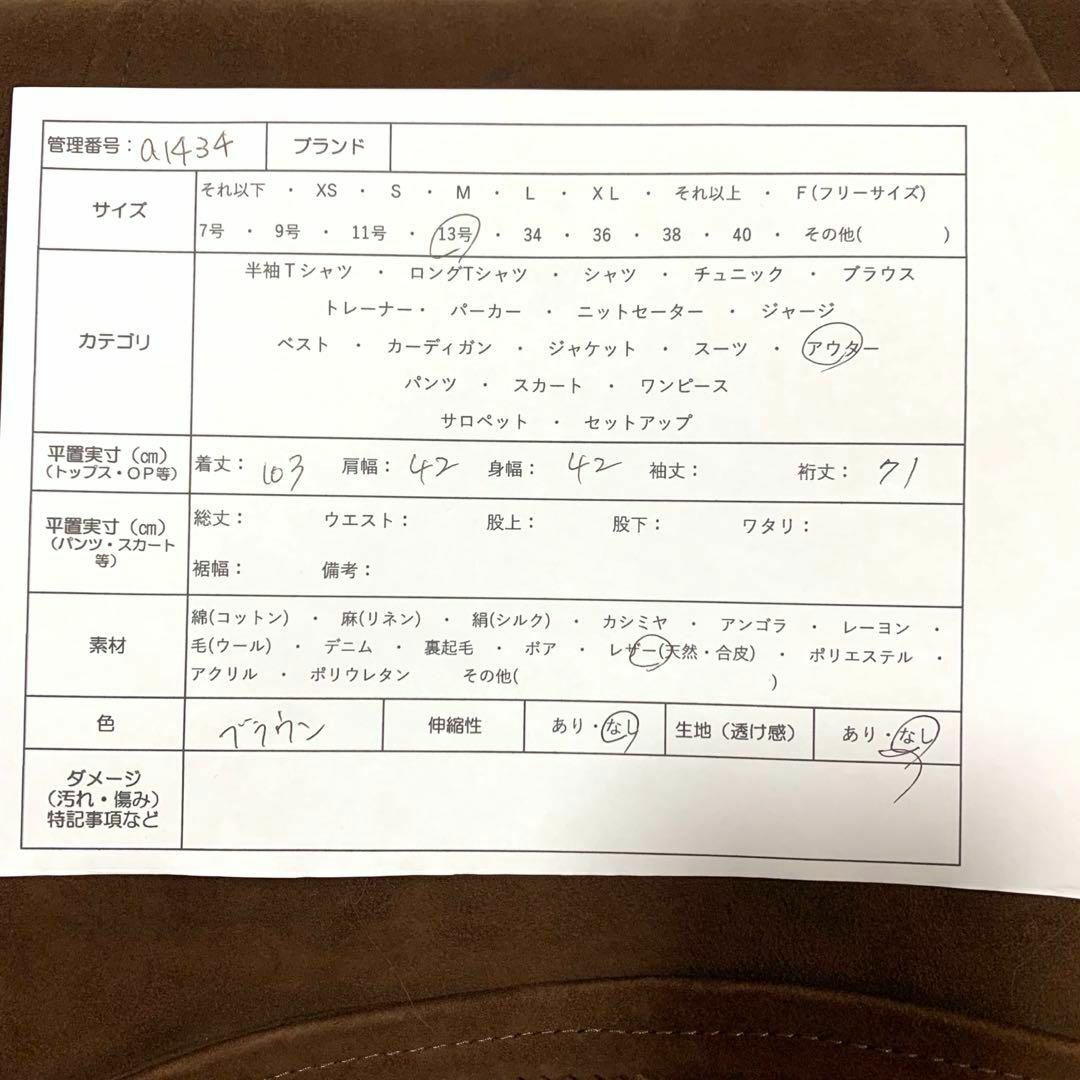 管理番号：a1434 ブランド
サイズ
それ以下 ・ XS ・ S ・ M ・ L ・ XL ・ それ以上 ・ F(フリーサイズ)
7号 ・ 9号 ・ 11号 ・ 13号 ・ 34 ・ 36 ・ 38 ・ 40 ・ その他( )
カテゴリ
半袖Tシャツ ・ ロングTシャツ ・ シャツ ・ チュニック ・ ブラウス
トレーナー・ パーカー ・ ニットセーター ・ ジャージ
ベスト ・ カーディガン ・ ジャケット ・ スーツ ・ アウター
パンツ ・ スカート ・ ワンピース
サロペット ・ セットアップ
平置実寸（㎝）
（トップス・OP等）
着丈： 103 肩幅： 42 身幅： 42 袖丈： 裄丈： 71
平置実寸（㎝）
（パンツ・スカート
等）
総丈： ウエスト： 股上： 股下： ワタリ：
裾幅： 備考：
素材
綿(コットン) ・ 麻(リネン) ・ 絹(シルク) ・ カシミヤ ・ アンゴラ ・ レーヨン ・
毛(ウール) ・ デニム ・ 裏起毛 ・ ボア ・ レザー(天然・合皮) ・ ポリエステル ・
アクリル ・ ポリウレタン その他( )
色 ブラウン 伸縮性 あり・なし 生地（透け感） あり・なし
ダメージ
（汚れ・傷み）
特記事項など